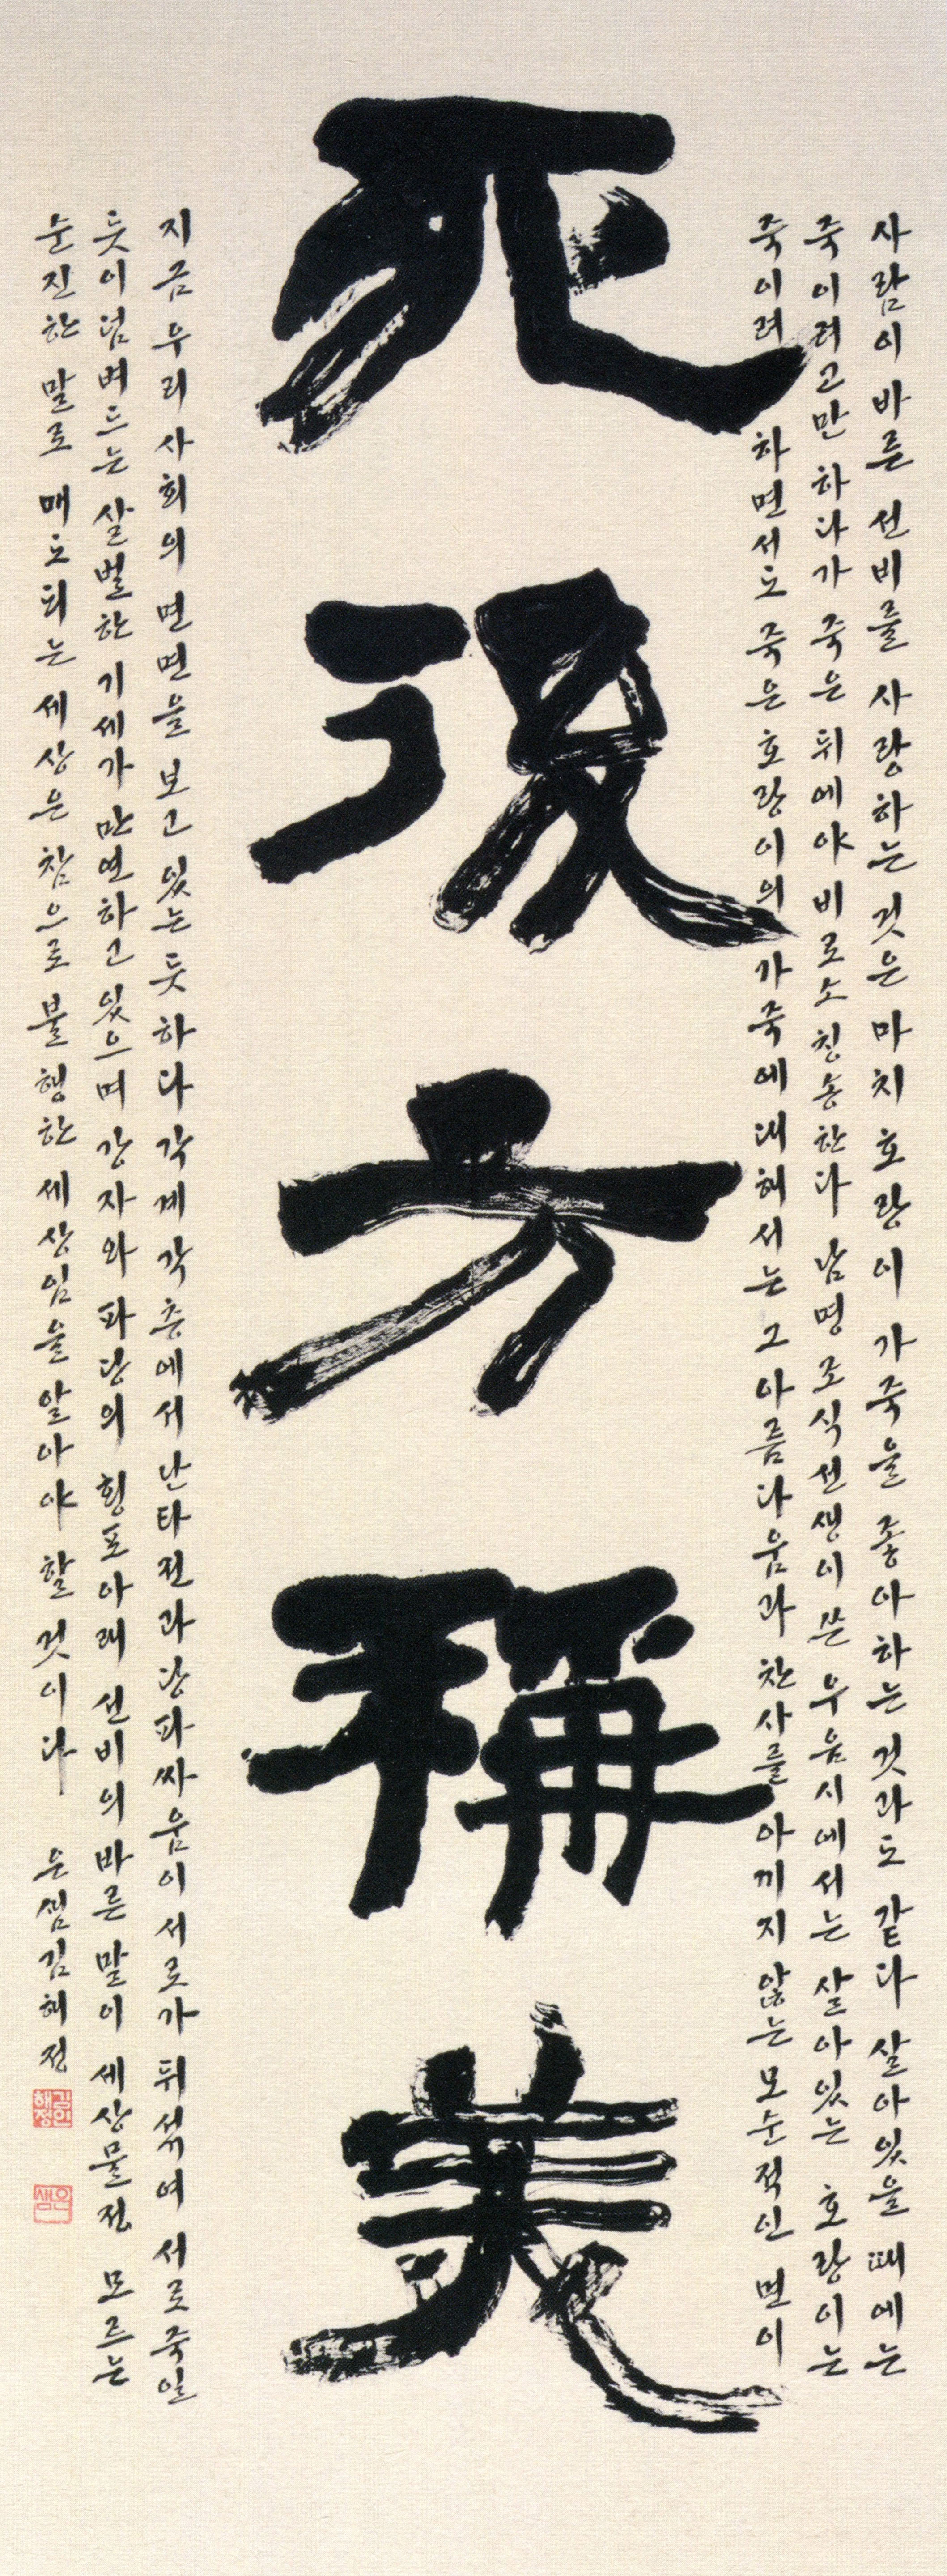 사람이 바른 선비를 사랑하는 것은 마치 호랑이 가죽을 좋아하는 것과도 같다 살아있을 때에는
죽이려고만 하다가 죽은 뒤에야 비로소 칭송한다 남명 조식선생이 쓴 우음시에서는 살아있는 호랑이는
죽이려 하면서도 죽은 호랑이의 가죽에 대해서는 그 아름다움과 찬사를 아끼지 않는 모순적인 면이
死後方稱美
지금 우리 사회의 면면을 보고 있는 듯 하다 각계각층에서 난타전과 당파싸움이 서로가 뒤섞여 서로 죽일
듯이 덤벼드는 살벌한 기세가 만연하고 있으며 강자와 파당의 횡포아래 선비의 바른 말이 세상물정 모르는
순진한 말로 매도되는 세상은 참으로 불행한 세상임을 알아야 할 것이다 은샘 김혜정
김인혜정
은샘